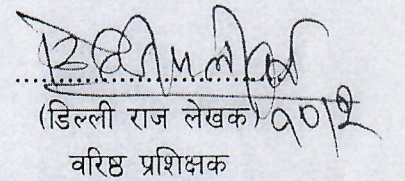 (डिल्ली राज लेखक) १०१२
वरिष्ठ प्रशिक्षक